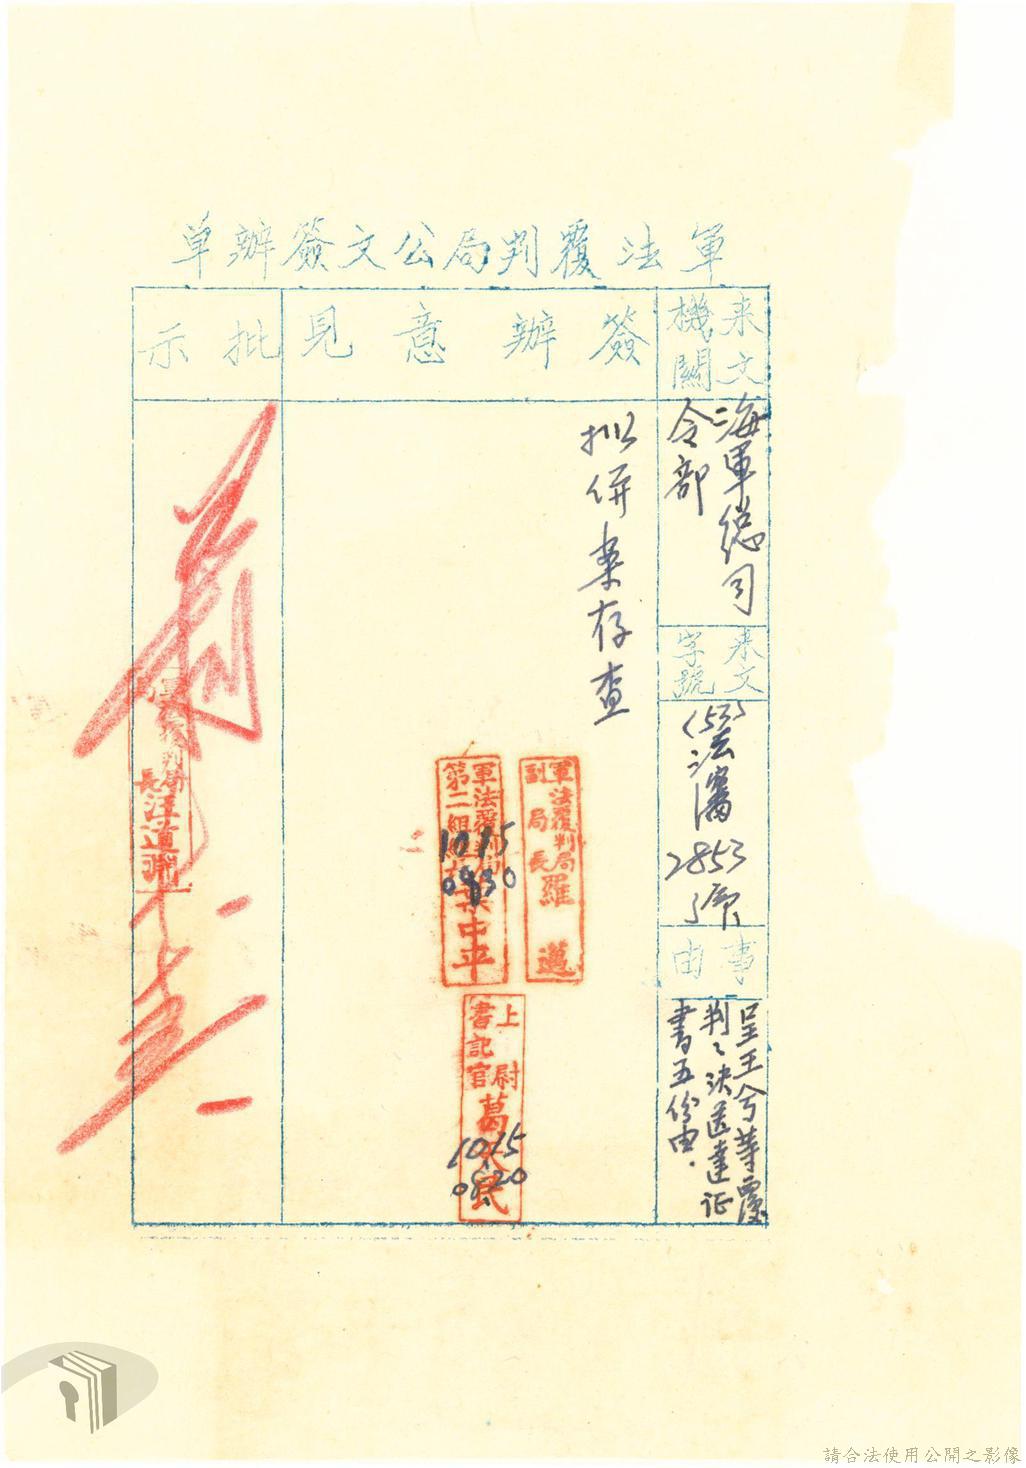 軍法覆判局公文簽辦单
来文
機關
海軍總司
令部
来文
字號
(53)法審
2853
號
事
由
呈王兮等覆
判決送達証
書五份由.
簽辦意見
擬併案存查
軍法覆判局
副局長羅邁
軍法覆判局
第二組組長
中平
1015
0930
上尉
書記官
葛民
1015
0820
批示
軍法覆判局
局長汪道淵
請合法使用公開之影像